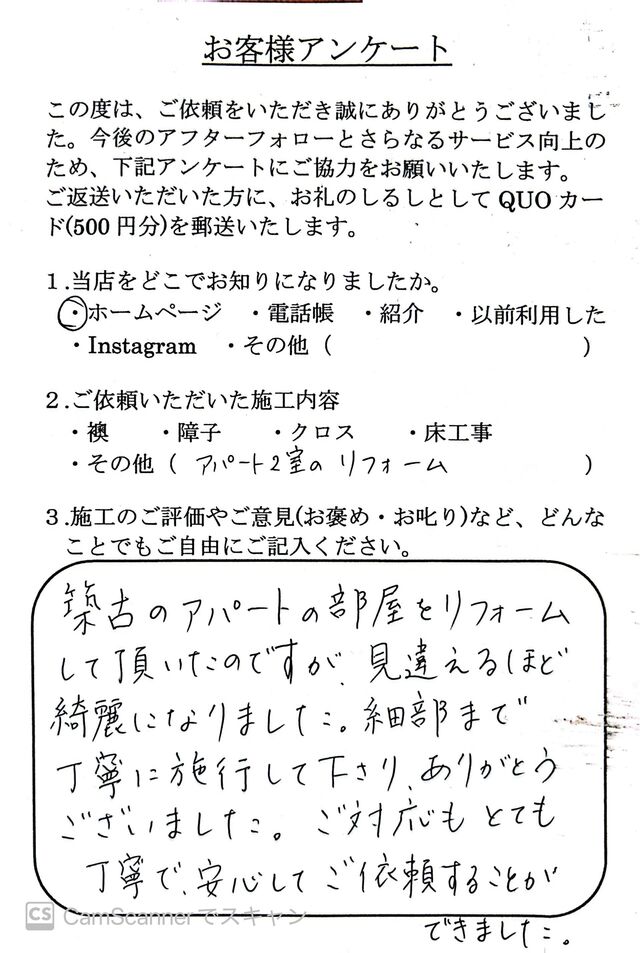 お客様アンケート
この度は、ご依頼をいただき誠にありがとうございまし
た。今後のアフターフォローとさらなるサービス向上の
ため、下記アンケートにご協力をお願いいたします。
ご返送いただいた方に、お礼のしるしとして QUO カー
ド(500 円分)を郵送いたします。
1.当店をどこでお知りになりましたか。
・ホームページ ・電話帳 ・紹介 ・以前利用した
・Instagram ・その他 ( )
2.ご依頼いただいた施工内容
・襖 ・障子 ・クロス ・床工事
・その他 ( アパート2室のリフォーム )
3.施工のご評価やご意見(お褒め・お叱り)など、どんな
ことでもご自由にご記入ください。
築古のアパートの部屋をリフォーム
して頂いたのですが、見違えるほど
綺麗になりました。細部まで
丁寧に施行して下さり、ありがとう
ございました。ご対応もとても
丁寧で、安心してご依頼することが
できました。
CS CamScannerでスキャン